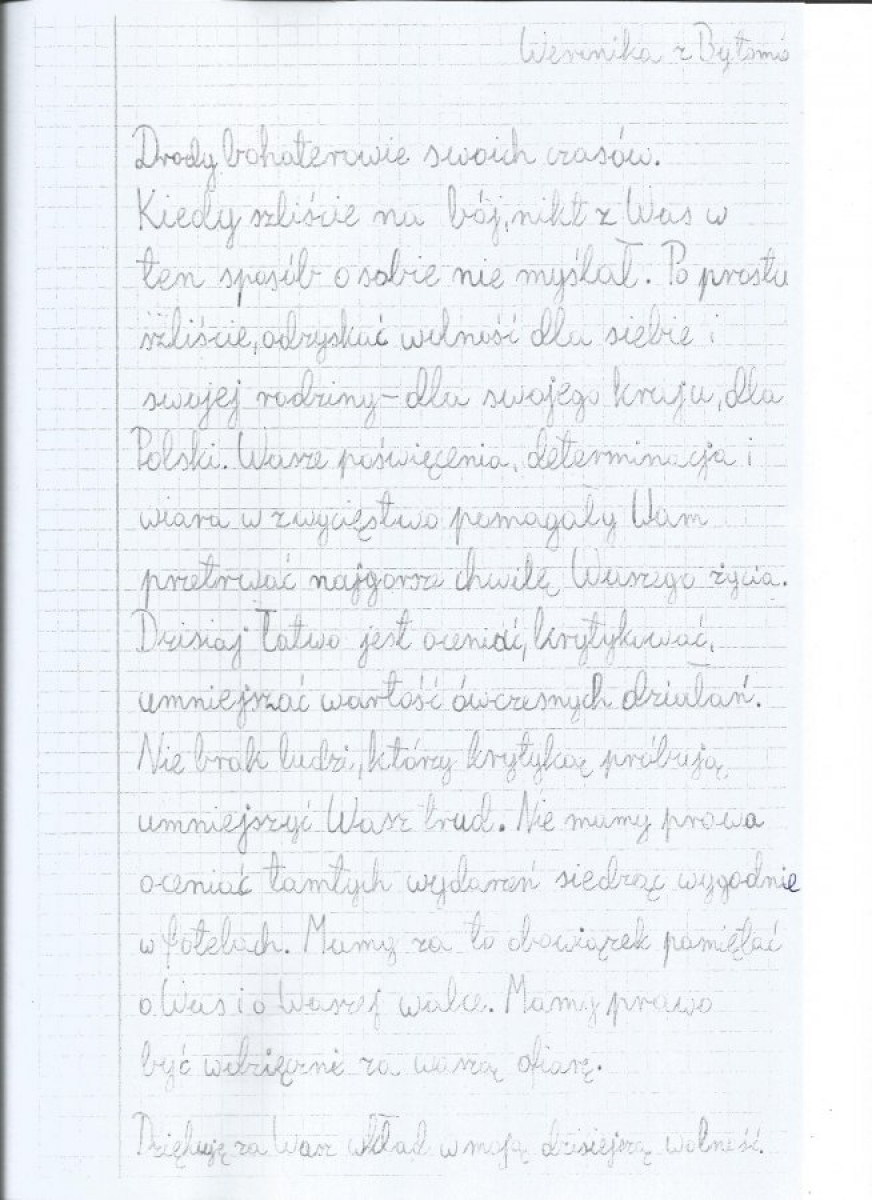 Weronika z Bytomia
Drody bohaterowie swoich czasów.
Kiedy szliście na bój, nikt z Was w
ten sposób o sobie nie myślał. Po prostu
szliście, odzyskać wolność dla siebie i
swojej rodziny - dla swojego kraju, dla
Polski. Wasze poświęcenia, determinacja i
wiara w zwycięstwo pomagały Wam
przetrwać najgorsze chwilę Waszego życia.
Dzisiaj łatwo jest oceniać, krytykować,
umniejszać wartość ówczesnych działań.
Nie brak ludzi, którzy krytyką próbują
umniejszyć Wasz trud. Nie mamy prawa
oceniać tamtych wydarzeń siedząc wygodnie
w fotelach. Mamy za to obowiązek pamiętać
o Was i o Waszej walce. Mamy prawo
być wdzięczni za waszą ofiarę.
Dziękuję za Wasz wkład w moją dzisiejszą wolność.